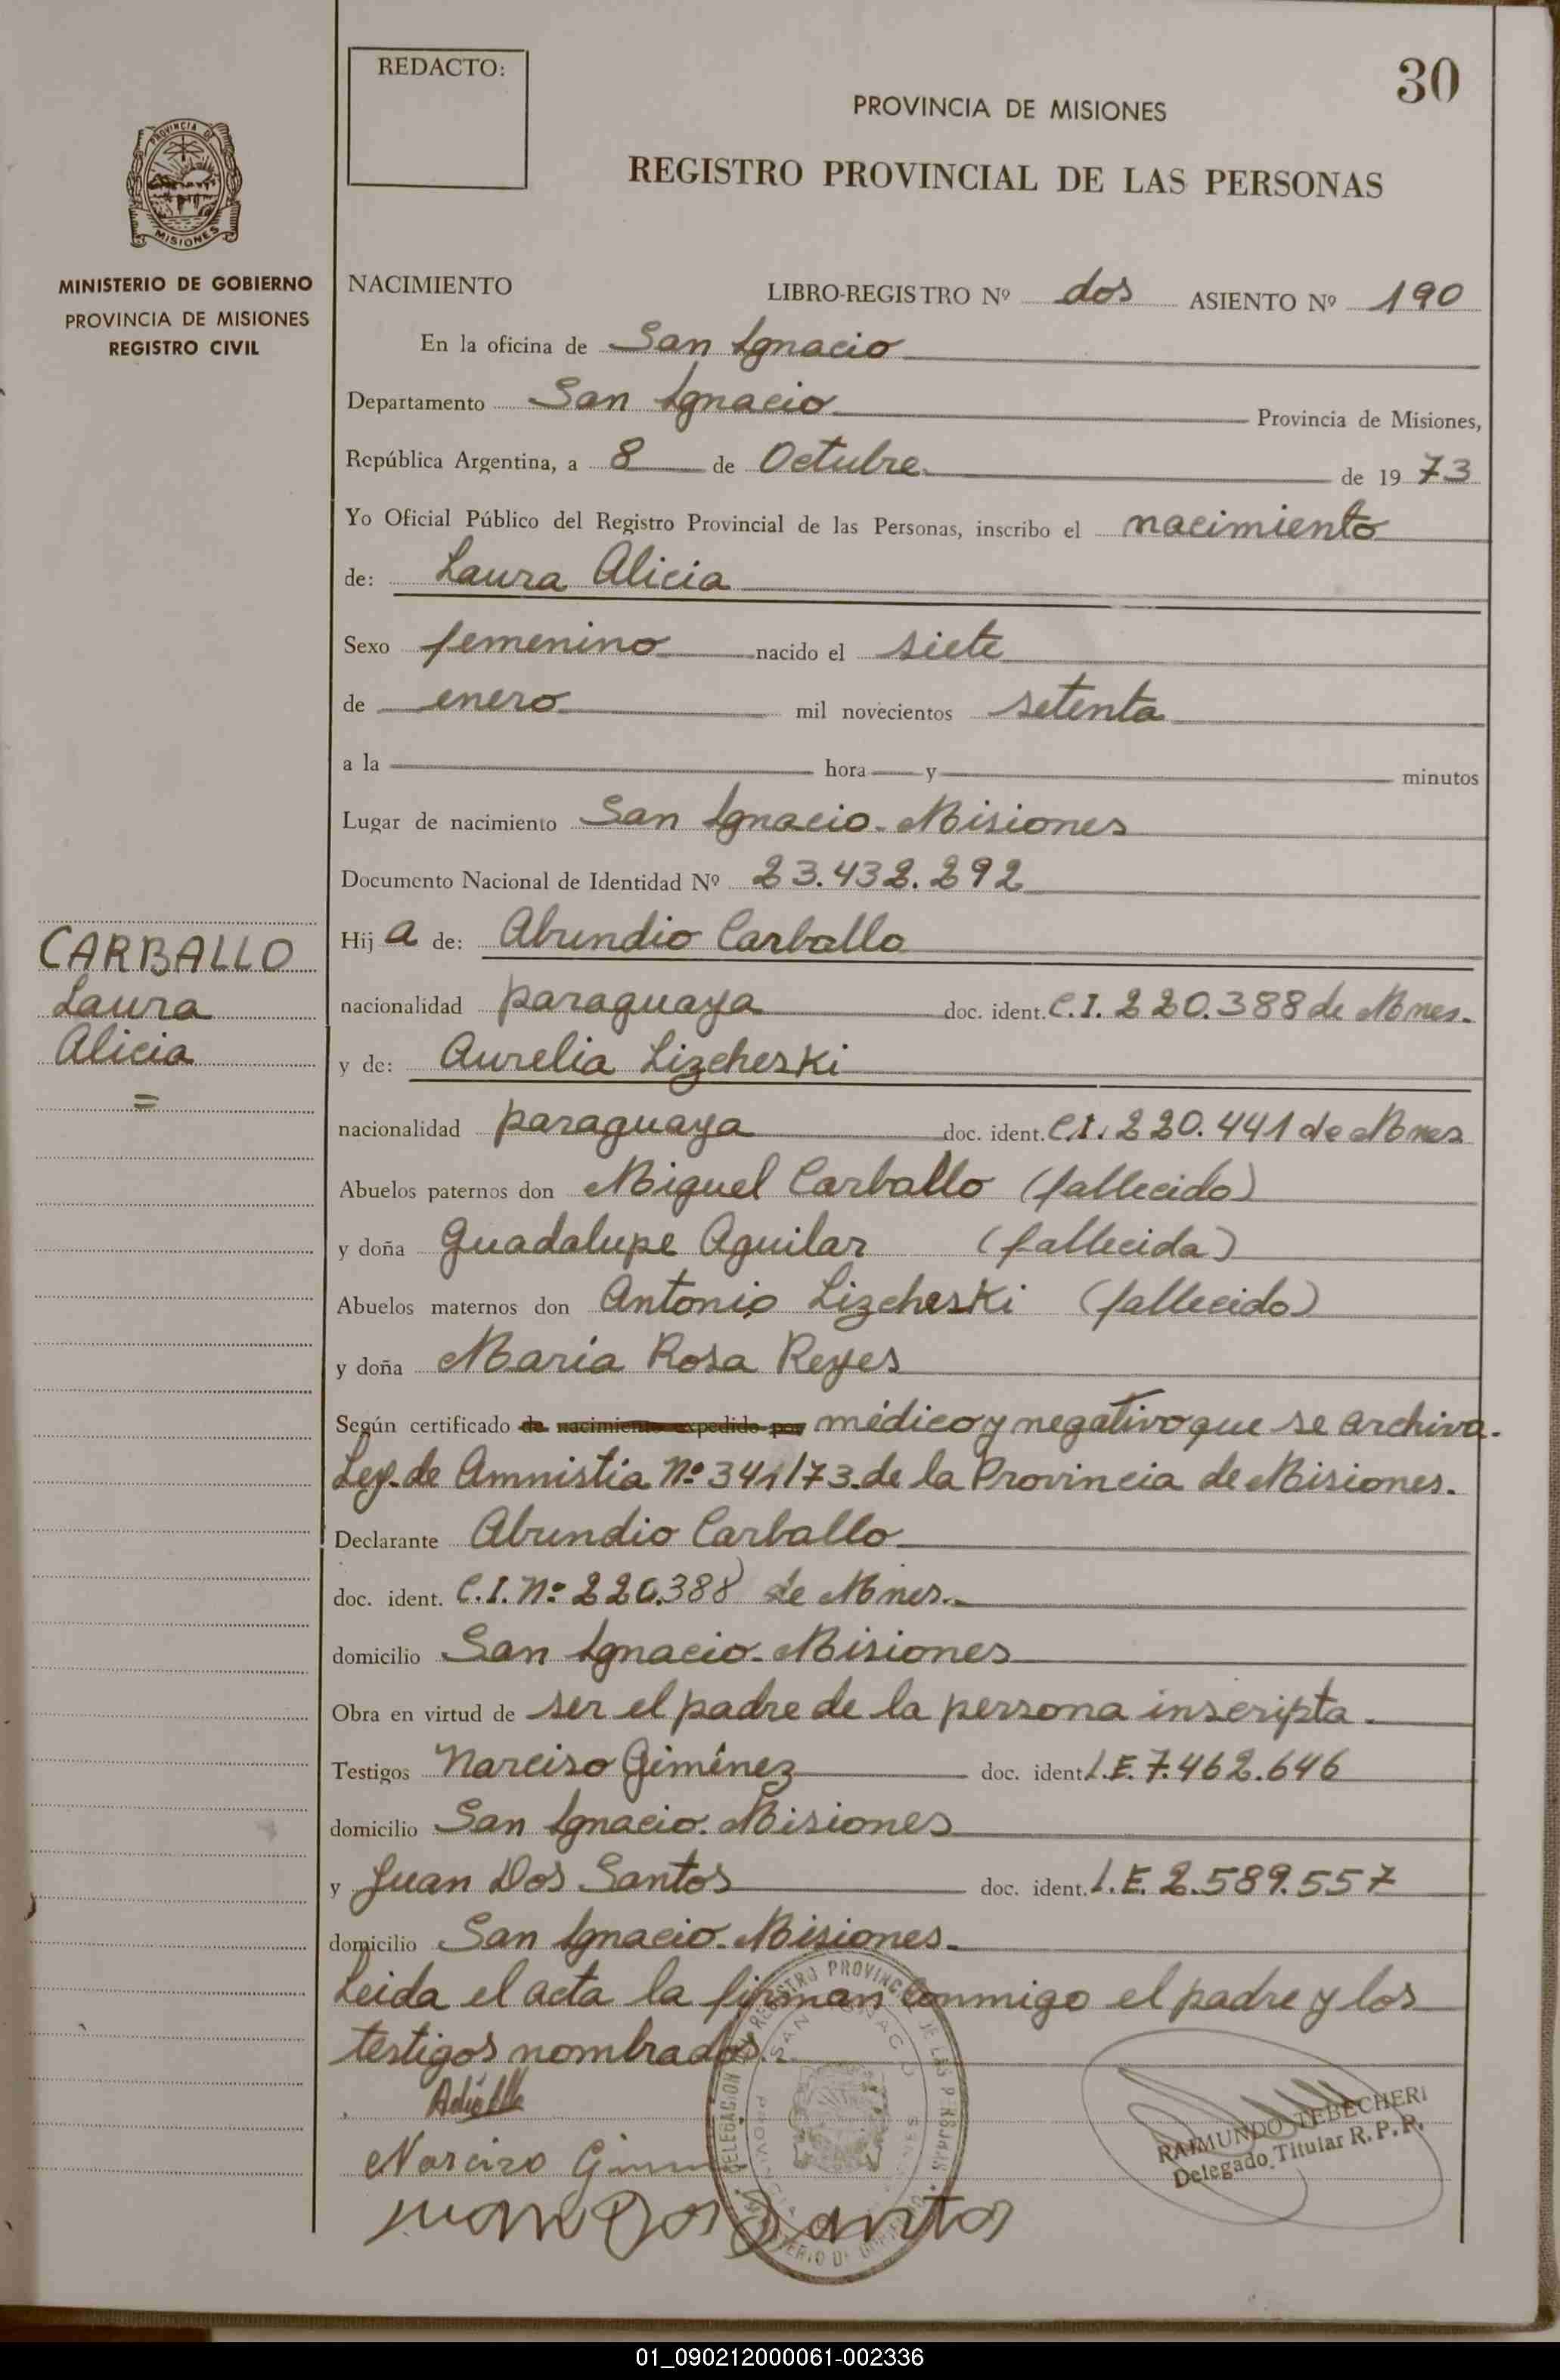 REDACTO:
30
PROVINCIA DE MISIONES
REGISTRO PROVINCIAL DE LAS PERSONAS
PROVINCIA DE
MISIONES
MINISTERIO DE GOBIERNO
PROVINCIA DE MISIONES
REGISTRO CIVIL
NACIMIENTO LIBRO-REGISTRO Nº dos ASIENTO Nº 190
En la oficina de San Ignacio
Departamento San Ignacio Provincia de Misiones,
República Argentina, a 8 de Octubre de 1973
Yo Oficial Público del Registro Provincial de las Personas, inscribo el nacimiento
de: Laura Alicia
Sexo femenino nacido el siete
de enero mil novecientos setenta
a la hora y minutos
Lugar de nacimiento San Ignacio. Misiones
Documento Nacional de Identidad Nº 23.432.292
CARBALLO
Laura
Alicia
=
Hija de: Abundio Carballo
nacionalidad paraguaya doc. ident. C.I. 220.388 de Mnes.
y de: Aurelia Lizcheski
nacionalidad paraguaya doc. ident. C.I. 220.441 de Mnes
Abuelos paternos don Miguel Carballo (fallecido)
y doña Guadalupe Aguilar (fallecida)
Abuelos maternos don Antonio Lizcheski (fallecido)
y doña María Rosa Reyes
Según certificado de nacimiento expedido por médico y negativo que se archiva.
Ley. de Amnistía Nº 341/73. de la Provincia de Misiones.
Declarante Abundio Carballo
doc. ident. C.I. Nº 220.388 de Mnes.
domicilio San Ignacio. Misiones
Obra en virtud de ser el padre de la persona inscripta.
Testigos Narciso Giménez doc. ident. L.E. 7.462.646
domicilio San Ignacio. Misiones
y Juan Dos Santos doc. ident. L.E. 2.589.557
domicilio San Ignacio. Misiones.
Leida el acta la firman conmigo el padre y los
testigos nombrados.
Narciso
Juan Dos Santos
DELEGACION REGISTRO PROVINCIAL DE LAS PERSONAS
SAN IGNACIO
RAIMUNDO TEBECHERI
Delegado Titular R. P. P.
01_090212000061-002336